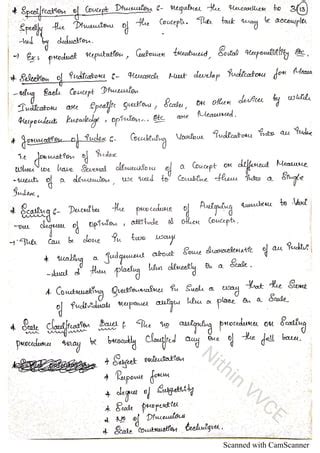 * Specification of Concept Dimension :- requires the researcher to 3 (13)
Specify the Dimensions of the Concepts. This task may be accomplis
-hed by deduction.
→ Ex: product reputation, Customer treatment, Social responsibility etc.
* Selection of Indicators :- research must develop Indicators for Meas
-uring Each Concept Dimension
Indicators are Specific question, Scales, or other devices by which
respondent knowledge, opinion... etc are Measured.
* Formation of Index :- Combining Various Indicators into an Index
i.e formation of Index
When we have Several dimensions of a Concept or different Measure
-ments of a dimension, we need to Combine them Into a Single
Index.
* Scaling :- Describes the procedures of Assigning numbers to Vari
-ous degrees of opinion, attitude & other Concepts.
→ This Can be done In two ways
* making a Judgement about Some characteristic of an Indivi
-dual & then placing him directly on a Scale.
* Constructing Questionnaires In Such a way that the Score
of Individuals response assign him a place on a Scale.
* Scale Classification Bases : The no assigning procedures or Scaling
procedures may be broadly Classified any one of the foll bases.
* Subject orientation
* Response form
* degree of Subjectivity
* Scale properties
* No of Dimensions
* Scale Construction techniques.
Nithin VVCE
Scanned with CamScanner